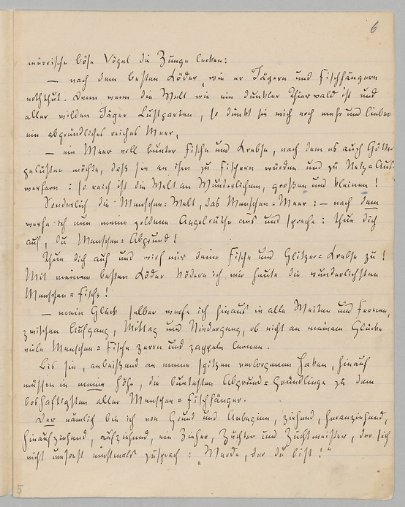 6
närrische böse Vögel die Zunge lecken:
— nach dem besten Köder, wie er Jägern und Fischfängern
noththut. Denn wenn die Welt wie ein dunkler Thierwald ist und
aller wilden Jäger Lustgarten, so dünkt sie mich noch mehr und lieber
ein abgründliches reiches Meer,
— ein Meer voll bunter Fische und Krebse, nach dem es auch Götter
gelüsten möchte, daß sie an ihm zu Fischern würden und zu Netz-Aus-
werfern: so reich ist die Welt an Wunderlichem, großem und kleinem!
Sonderlich die Menschen-Welt, das Menschen-Meer: — nach dem
werfe ich nun meine goldene Angelruthe aus und spreche: thue dich
auf, du Menschen-Abgrund!
Thue dich auf und wirf mir deine Fische und Glitzer-Krebse zu!
Mit meinem besten Köder ködere ich mir heute die wunderlichsten
Menschen-Fische!
— mein Glück selber werfe ich hinaus in alle Weiten und Fernen,
zwischen Aufgang, Mittag und Niedergang, ob nicht an meinem Glücke
viele Menschen-Fische zerrn und zappeln lernen.
Bis sie, anbeißend an meine spitzen verborgenen Haken, hinauf
müssen in meine Höhe, die buntesten Abgrund-Gründlinge zu dem
boshaftigsten aller Menschen-Fischfänger.
Der nämlich bin ich von Grund und Anbeginn, ziehend, heranziehend,
hinaufziehend, aufziehend, ein Zieher, Züchter und Zuchtmeister, der sich
nicht umsonst einstmals zusprach: „Werde, der du bist!"
5